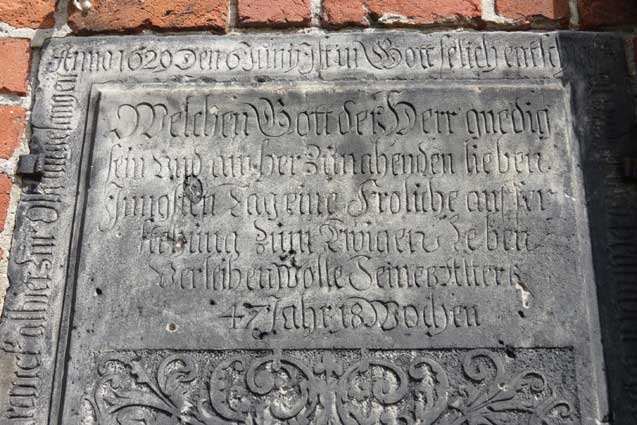 Anno 1629 Den 6 Junÿ Ist in Gott selich entsch
Welchen Gott der Herr gnedig
sein Und am her Zunahenden lieben
Jungsten Tag eine Froliche auffer
stehung Zum Ewigen Leben
Verleihen wolle Seines Alters
47 Jahr 18 Wochen